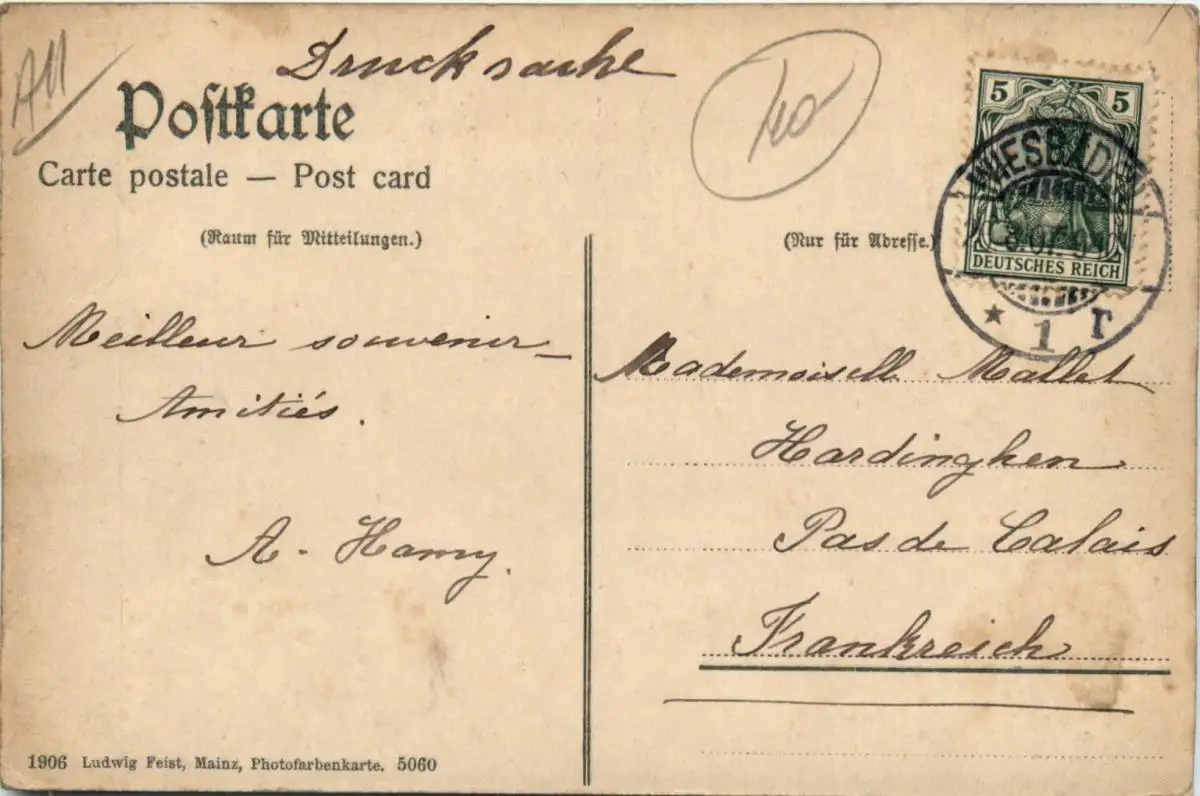 Drucksache
Postkarte
Carte postale — Post card
(Raum für Mitteilungen.)
(Nur für Adresse.)
5 5
DEUTSCHES REICH
WIESBADEN
* 1 r
Meilleur souvenir
Amitiés.
A. Hamy.
Mademoiselle Mallet
Hardinghen
Pas de Calais
Frankreich
1906 Ludwig Feist, Mainz, Photofarbenkarte. 5060